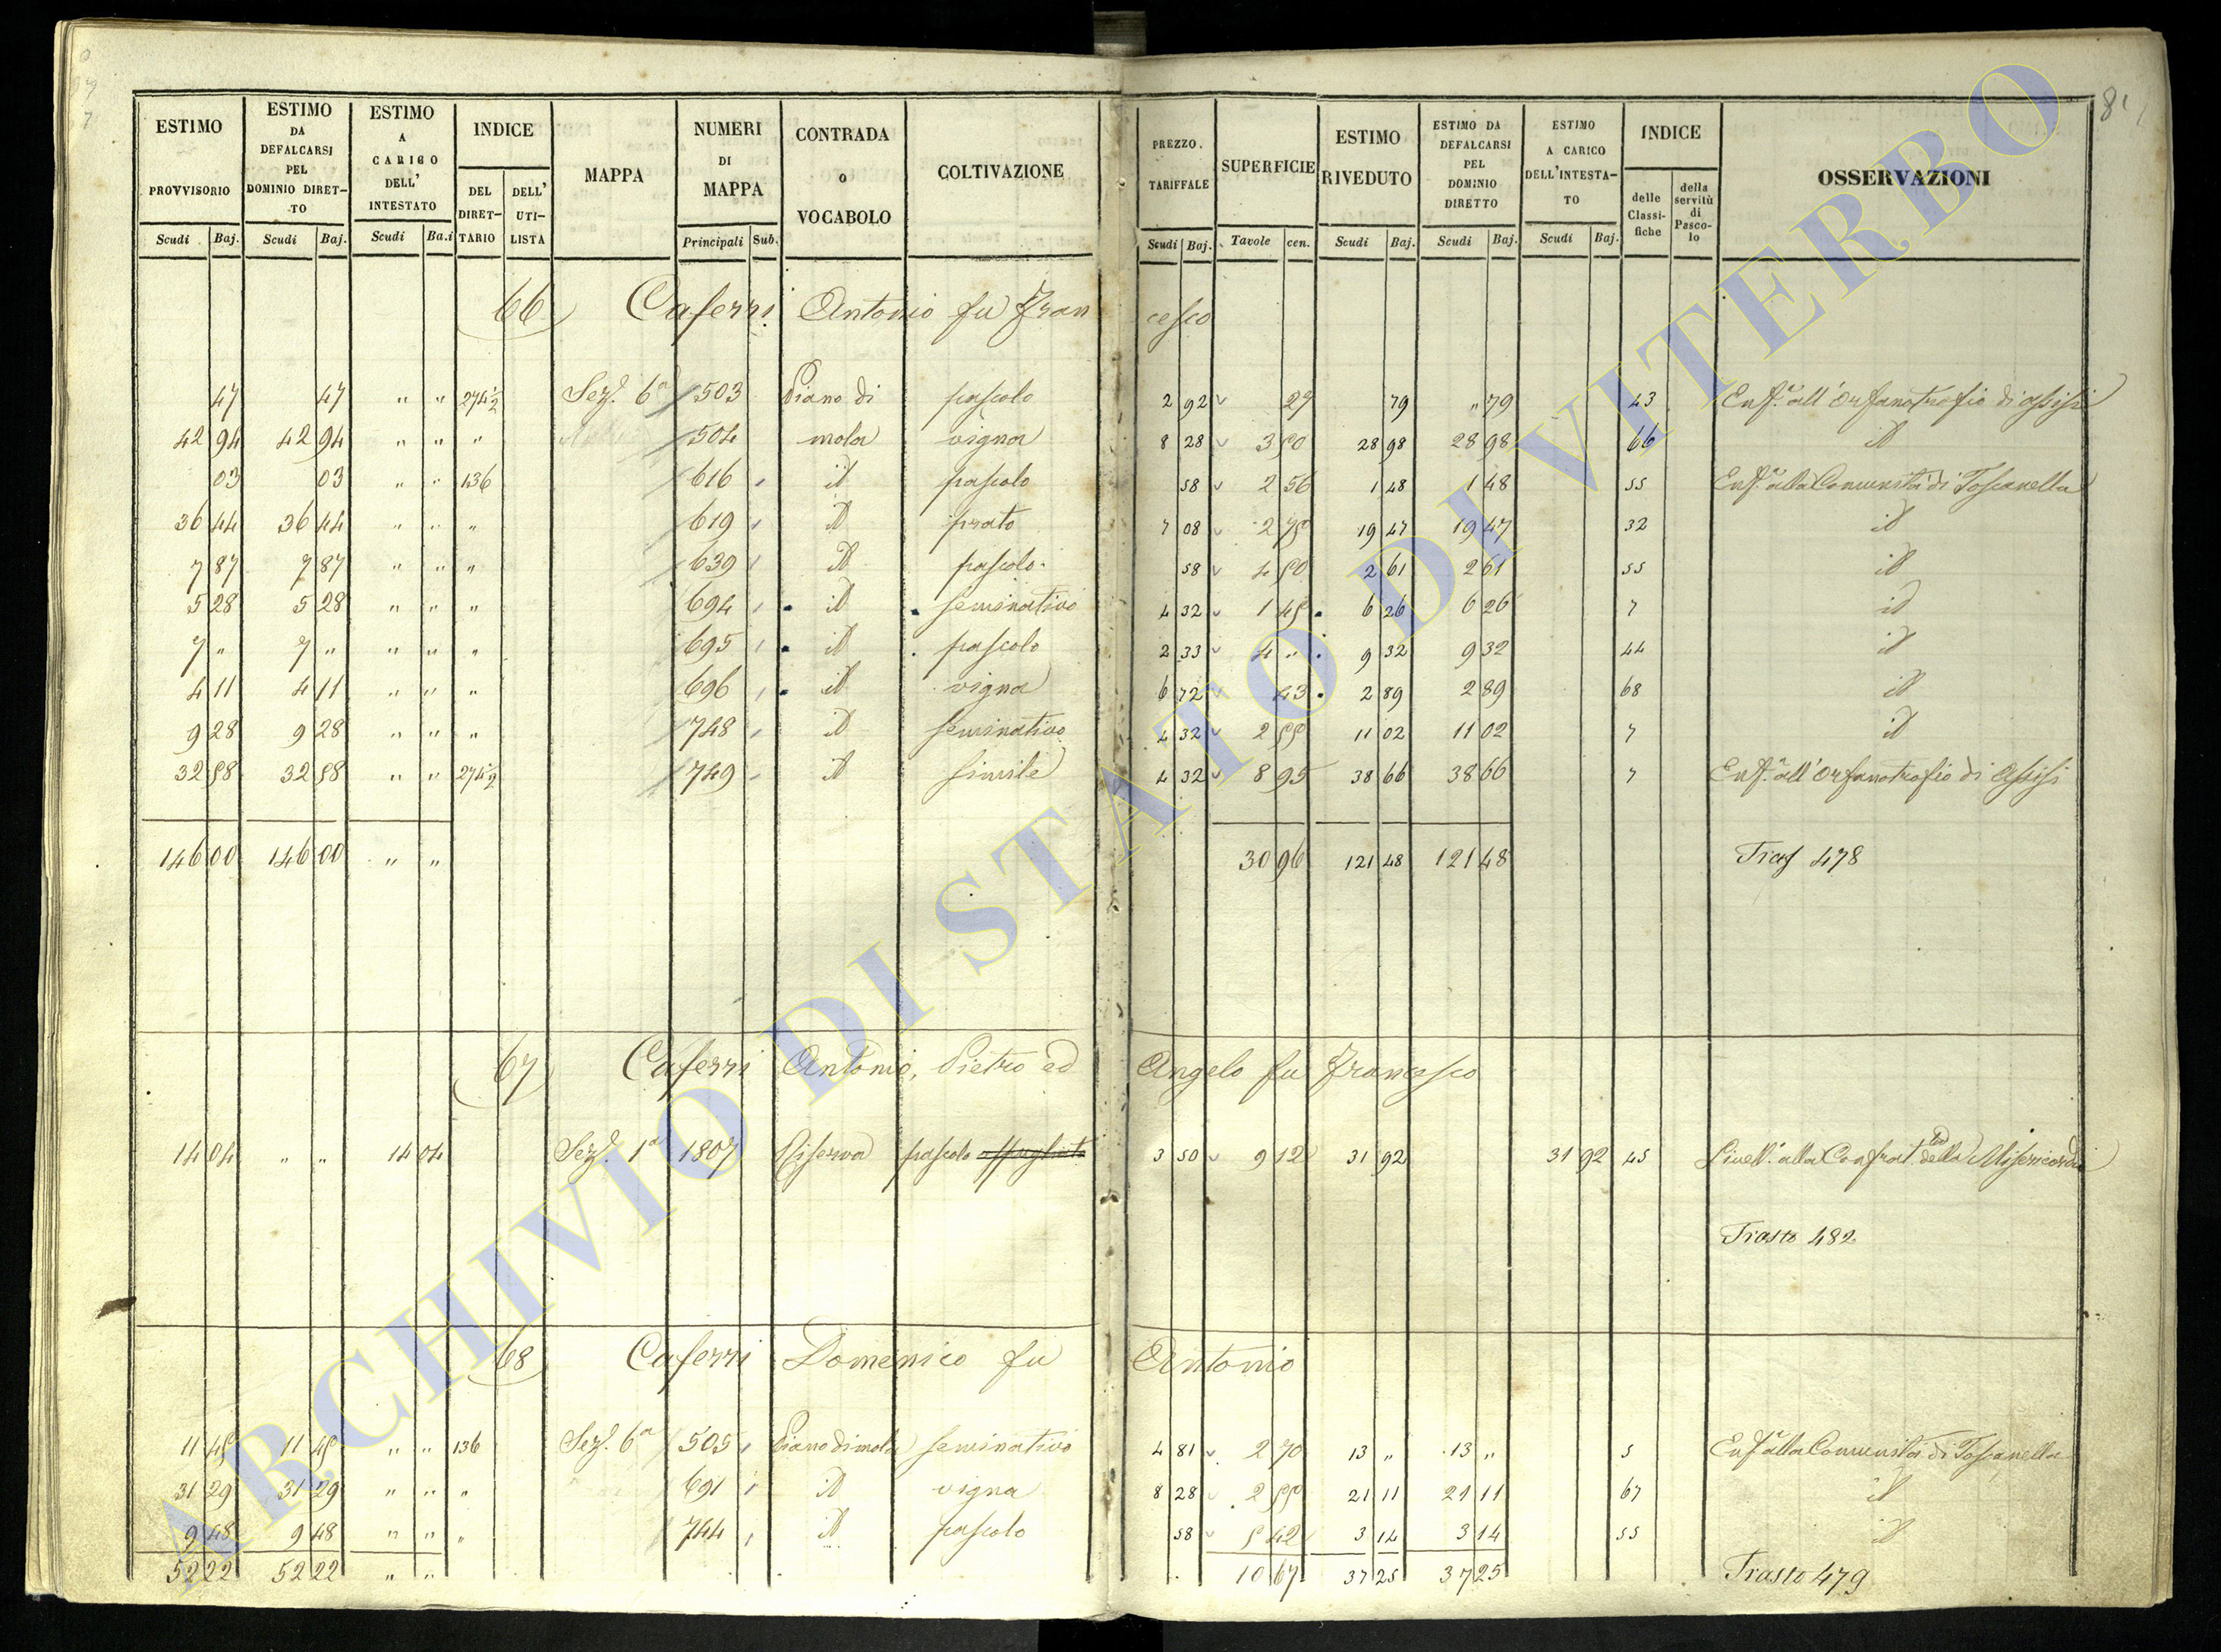 81
ESTIMO PROVVISORIO Scudi Baj.
ESTIMO DA DEFALCARSI PEL DOMINIO DIRET-TO Scudi Baj.
ESTIMO A CARICO DELL' INTESTATO Scudi Ba.i
INDICE DEL DIRET-TARIO DELL' UTI-LISTA
MAPPA
NUMERI DI MAPPA Principali Sub.
CONTRADA o VOCABOLO
COLTIVAZIONE
PREZZO. TARIFFALE Scudi Baj.
SUPERFICIE Tavole cen.
ESTIMO RIVEDUTO Scudi Baj.
ESTIMO DA DEFALCARSI PEL DOMINIO DIRETTO Scudi Baj.
ESTIMO A CARICO DELL'INTESTA-TO Scudi Baj.
INDICE delle Classi-fiche della servitù di Pasco-lo
OSSERVAZIONI
66 Caferri Antonio fu Francesco
47 47 " " 274½ Sez. 6a 503 Piano di pascolo 2 92 27 79 " 79 43 Enf.a all'Orfanotrofio di Assisi
42 94 42 94 " " " 504 mola vigna 8 28 3 50 28 98 28 98 66 id
03 03 " " 136 616 id pascolo 58 2 56 1 48 1 48 55 Enf.a alla Comunità di Toscanella
36 44 36 44 " " " 619 id prato 7 08 2 75 19 47 19 47 32 id
7 87 7 87 " " " 639 id pascolo 58 4 50 2 61 2 61 55 id
5 28 5 28 " " " 694 id seminativo 4 32 1 45 6 26 6 26 7 id
7 " 7 " " " " 695 id pascolo 2 33 4 " 9 32 9 32 44 id
4 11 4 11 " " " 696 id vigna 6 72 43 2 89 2 89 68 id
9 28 9 28 " " " 748 id seminativo 4 32 2 55 11 02 11 02 7 id
32 58 32 58 " " 274½ 749 id simile 4 32 8 95 38 66 38 66 7 Enf.a all'Orfanotrofio di Assisi
146 00 146 00 " " 30 96 121 48 121 48 Tras 478
67 Caferri Antonio, Pietro ed Angelo fu Francesco
14 04 " " 14 04 Sez. 1a 1807 Riserva pascolo 3 50 9 12 31 92 31 92 45 Livell. alla Confrat. della Misericordia
Trasto 482
68 Caferri Domenico fu Antonio
11 45 11 45 " " 136 Sez. 6a 505 Piano di mola seminativo 4 81 2 70 13 " 13 " 5 Enf.a alla Comunità di Toscanella
31 29 31 29 " " " 691 id vigna 8 28 2 55 21 11 21 11 67 id
9 48 9 48 " " " 744 id pascolo 58 5 42 3 14 3 14 55 id
52 22 52 22 " " 10 67 37 25 37 25 Trasto 479
ARCHIVIO DI STATO DI VITERBO